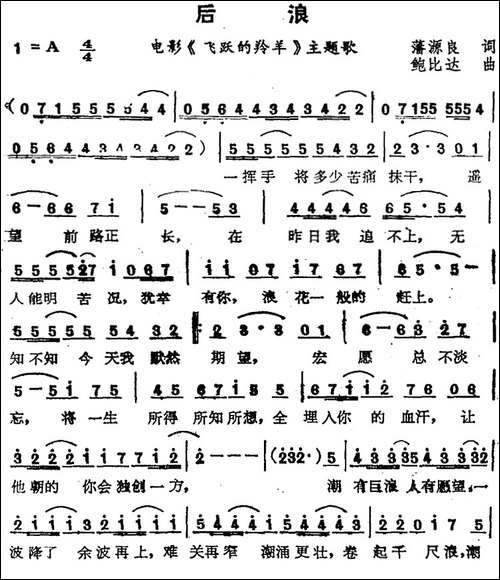 后 浪
1 = A 4/4 电影《飞跃的羚羊》主题歌 藩源良 词
鲍比达 曲
(0 7 1 5 5 5 5 5 4 4 | 0 5 6 4 4 3 4 3 4 2 2 | 0 7 1 5 5 5 5 5 4
0 5 6 4 4 3 4 3 4 2 2) | 5 5 5 5 5 5 4 3 2 | 2 3 · 3 0 1
一挥手 将多少苦痛 抹干, 遥
6 — 6 6 7 i | 5 — — 5 3 | 4 4 4 4 4 6 5 · 5 4
望 前路正 长, 在 昨日我 追 不上, 无
5 5 5 5 5 i 7 i 0 6 7 | i i 0 7 i 7 i | 6 5 · 5 —
人能明 苦 况, 犹幸 有你, 浪 花一般的 赶上。
5 5 5 5 5 5 4 5 4 3 2 | 2 · 3 · 3 0 1 | 6 — 6 3 2 7
知不知 今天我 默然 期望, 宏 愿 总不淡
5 — 5 i 7 5 | 4 5 6 7 i 5 | 6 7 i i i 2 7 6 0 6
忘, 将一生 所得所知所想, 全 埋入你 的血汗, 让
3 2 2 2 i i i 7 7 i 2 | 2 — — — | (2 3 2 · ) 5 | 4 3 3 3 5 4 3 3 3 2
他朝的 你会独创一方, 潮 有巨浪 人有愿望, 一
2 i i i i 3 2 i | 5 4 4 4 4 5 4 i i i | 2 2 0 i 7 5
波降了 余波再上, 难 关再窄 潮涌更壮, 卷 起千 尺浪, 潮